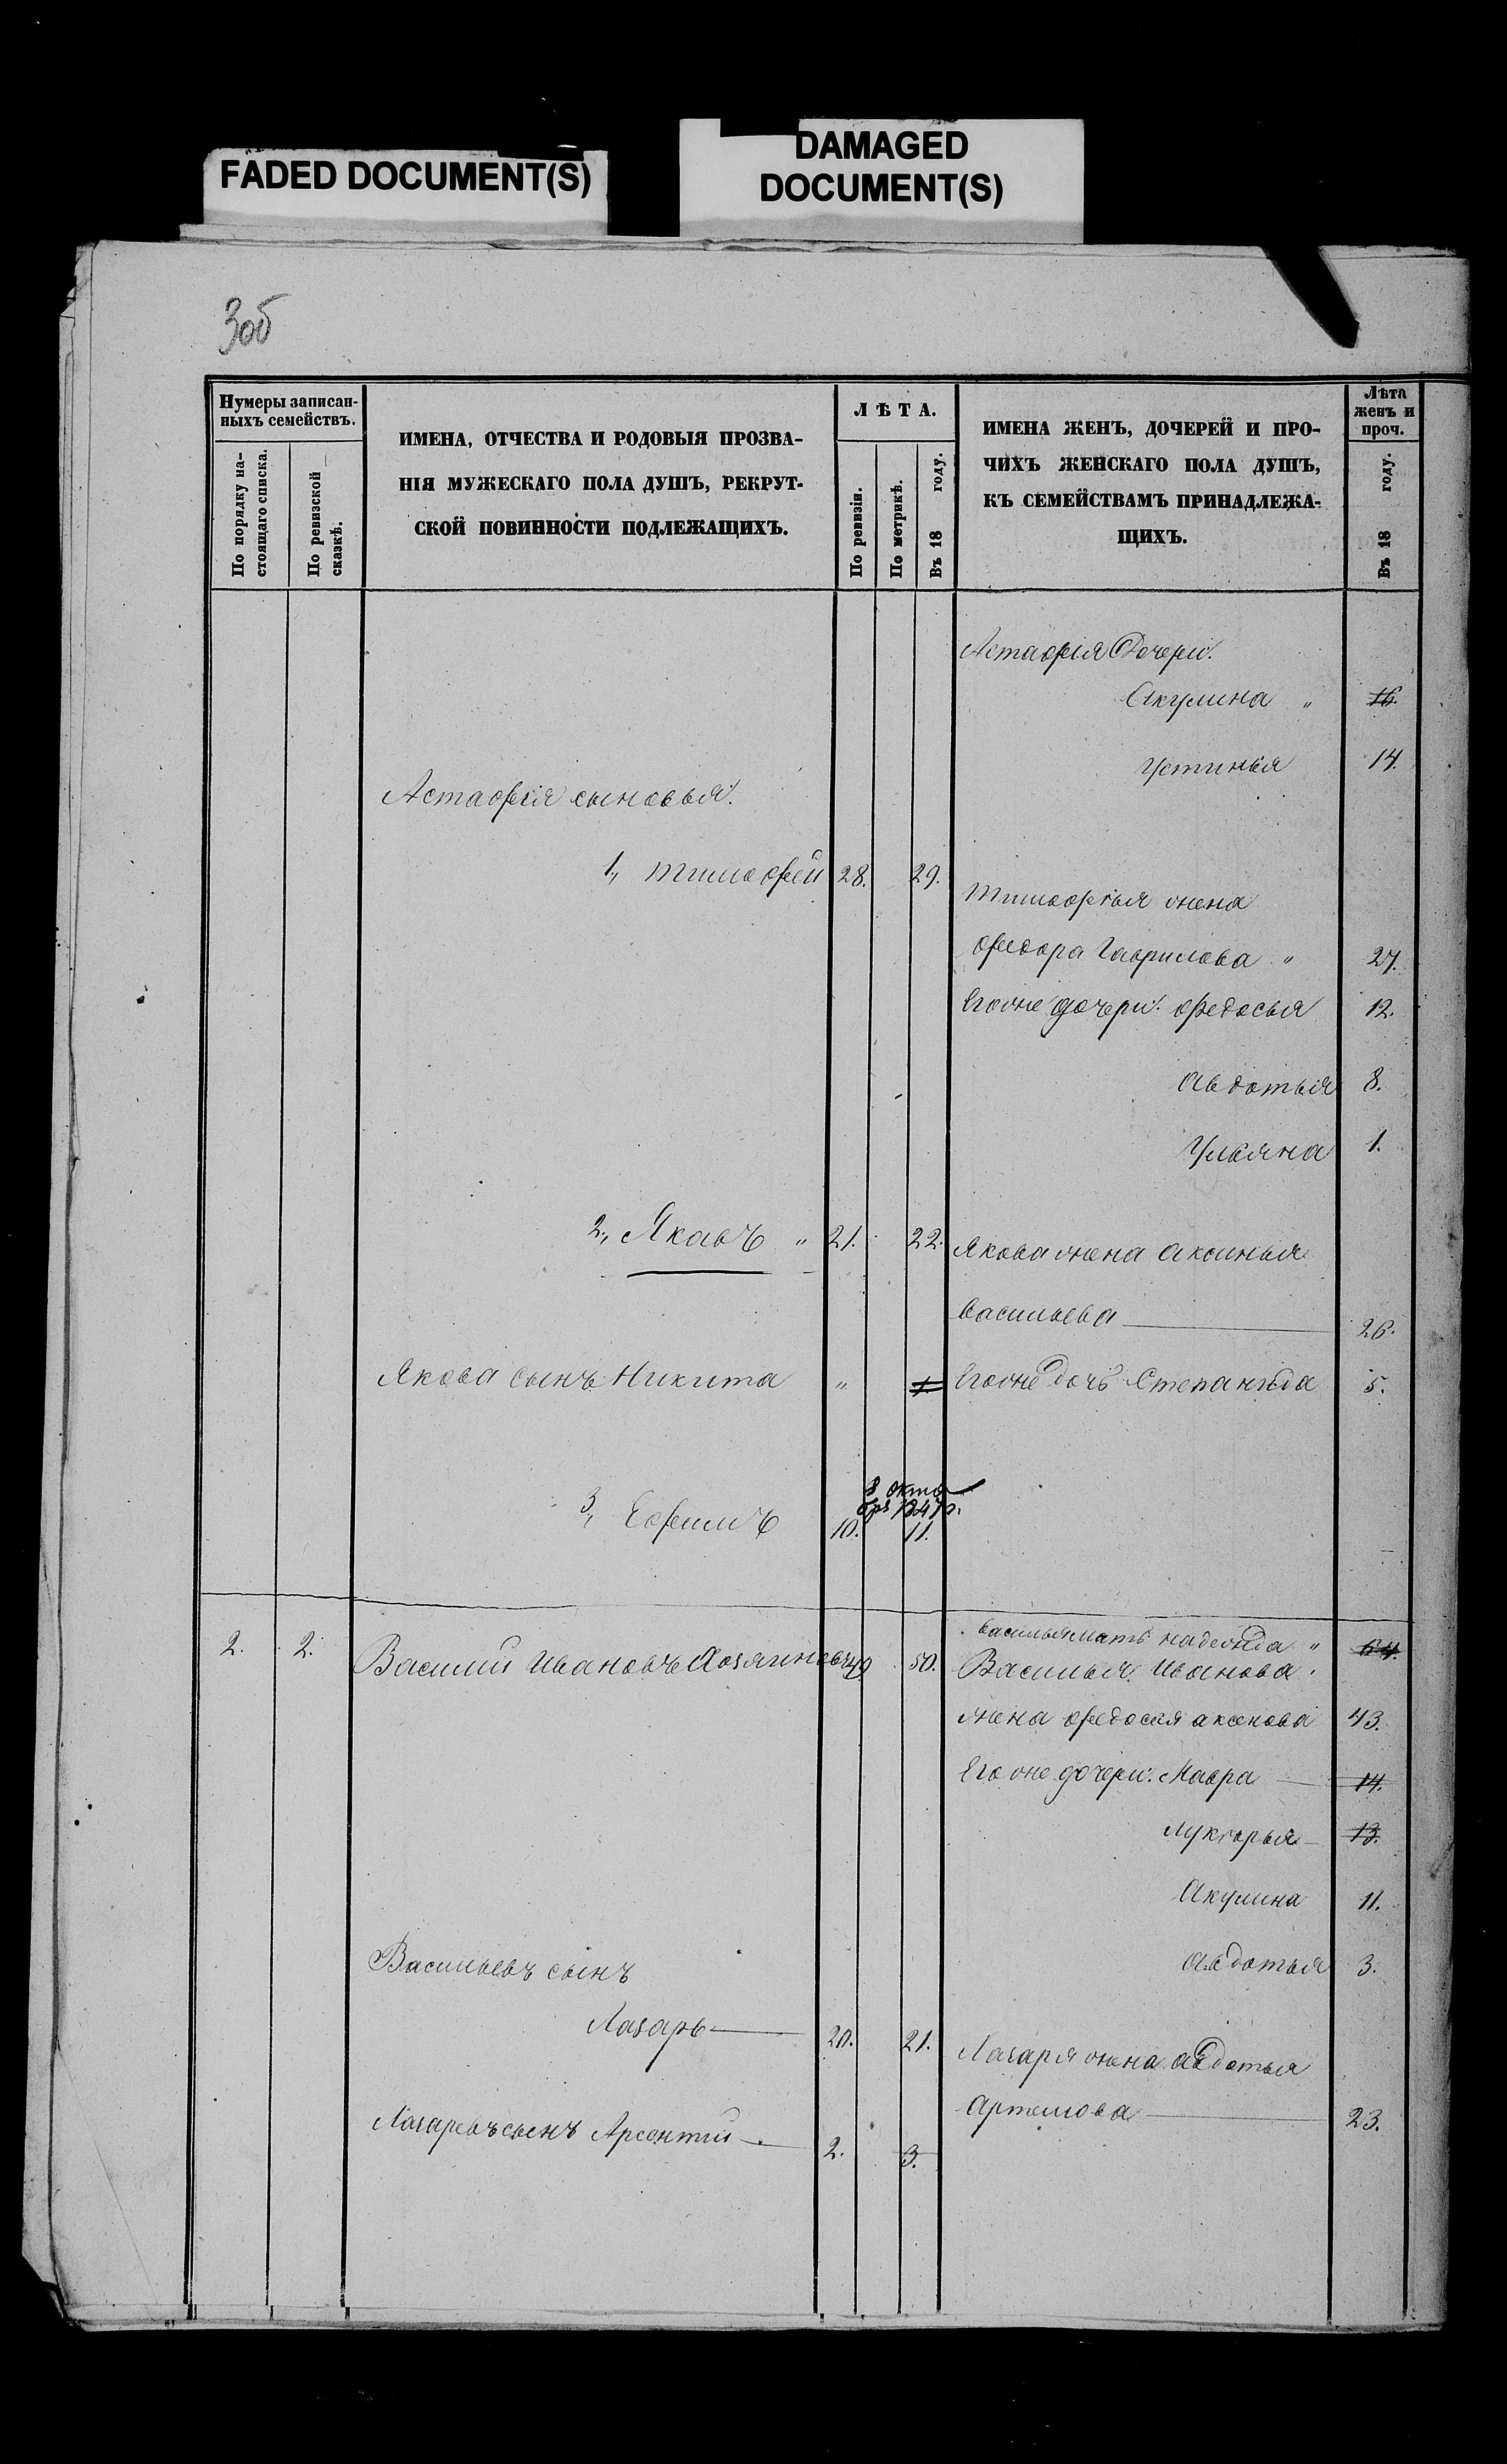 FADED DOCUMENT(S)
DAMAGED
DOCUMENT(S)
3об
Нумеры записан-
ныхъ семействъ.
По порядку на-
стоящаго списка.
По ревизской
сказкѣ.
ИМЕНА, ОТЧЕСТВА И РОДОВЫЯ ПРОЗВА-
НІЯ МУЖЕСКАГО ПОЛА ДУШЪ, РЕКРУТ-
СКОЙ ПОВИННОСТИ ПОДЛЕЖАЩИХЪ.
ЛѢТА.
По ревизіи.
По метрикѣ.
Въ 18 году.
ИМЕНА ЖЕНЪ, ДОЧЕРЕЙ И ПРО-
ЧИХЪ ЖЕНСКАГО ПОЛА ДУШЪ,
КЪ СЕМЕЙСТВАМЪ ПРИНАДЛЕЖА-
ЩИХЪ.
Лѣта
женъ и
проч.
Въ 18 году.
Астафія Дочери.
Акулина " 16.
Устинья 14.
Астафія сыновья.
1., тимофей 28. 29.
тимофѣя жена
федора Гаврилова " 27.
Егоже дочери: федосья 12.
Авдотья 8.
Ульяна 1.
2., Яковъ " 21. 22.
Якова жена аксинья
васильева 26.
Якова сынъ Никита " 1.
Егоже дочь Степанида 5.
8 октя
бря 1841 г.
3., Ефимъ 10. 11.
васильямать надежда " 64.
2. 2. Василий Ивановъ 49 50.
Василья Иванова
жена федосья аксенова 43.
Его же дочери: Мавра 14.
Лукерья 13.
Акулина 11.
Васильевъ сынъ
Авдотья 3.
Лазарь 20. 21.
Лазаря жена авдотья
Артемова 23.
Лазаревъ сынъ Арсентий 2. 3.